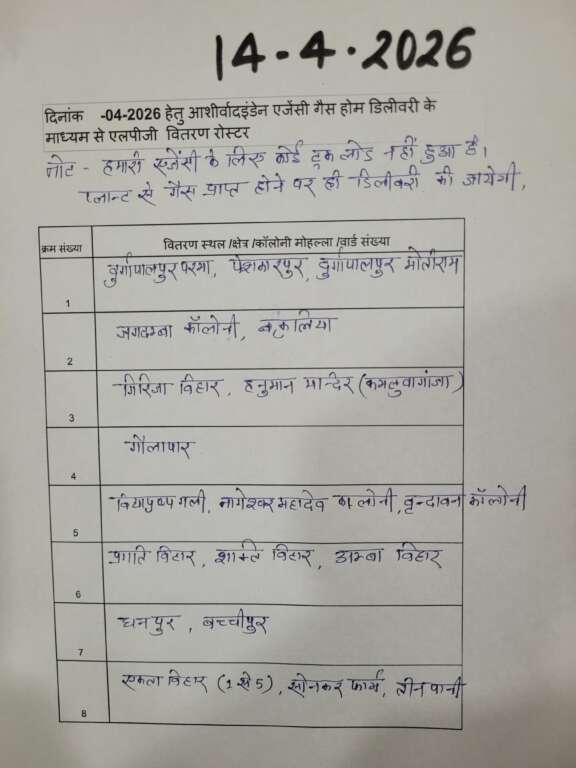 14-4-2026
दिनांक -04-2026 हेतु आशीर्वादइंडेन एजेंसी गैस होम डिलीवरी के
माध्यम से एलपीजी वितरण रोस्टर
नोट - हमारी एजेंसी के लिए कोई ट्रक लोड नहीं हुआ है।
प्लान्ट से गैस प्राप्त होने पर ही डिलीवरी की जायेगी,
क्रम संख्या वितरण स्थल /क्षेत्र /कॉलोनी मोहल्ला /वार्ड संख्या
1 दुर्गापालपुर परमा, पेशकारपुर, दुर्गापालपुर मोतीराम
2 जगदम्बा कॉलोनी, बकुलिया
3 गिरिजा विहार, हनुमान मन्दिर (कमलुवागांजा)
4 गौलापार
5 गली, नागेश्वर महादेव कालोनी, वृन्दावन कॉलोनी
6 प्रगति विहार, शक्ति विहार, अम्बा विहार
7 धनपुर, बच्चीपुर
8 एकता विहार (1 से 5), सोनकर फार्म, तीनपानी